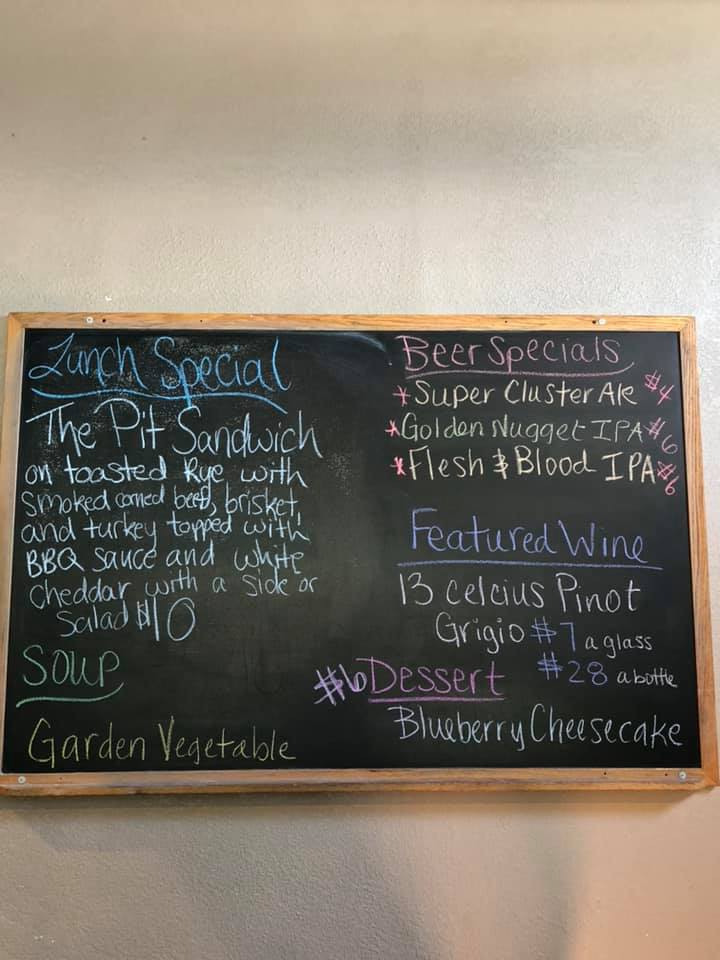 Lunch Special
The Pit Sandwich
on toasted Rye with
smoked corned beef, brisket,
and turkey topped with
BBQ sauce and white
cheddar with a side or
salad $10
Soup
Garden Vegetable
Beer Specials
* Super Cluster Ale $4
* Golden Nugget IPA $6
* Flesh & Blood IPA $6
Featured Wine
13 celcius Pinot
Grigio $7 a glass
$28 a bottle
$6 Dessert
Blueberry Cheesecake